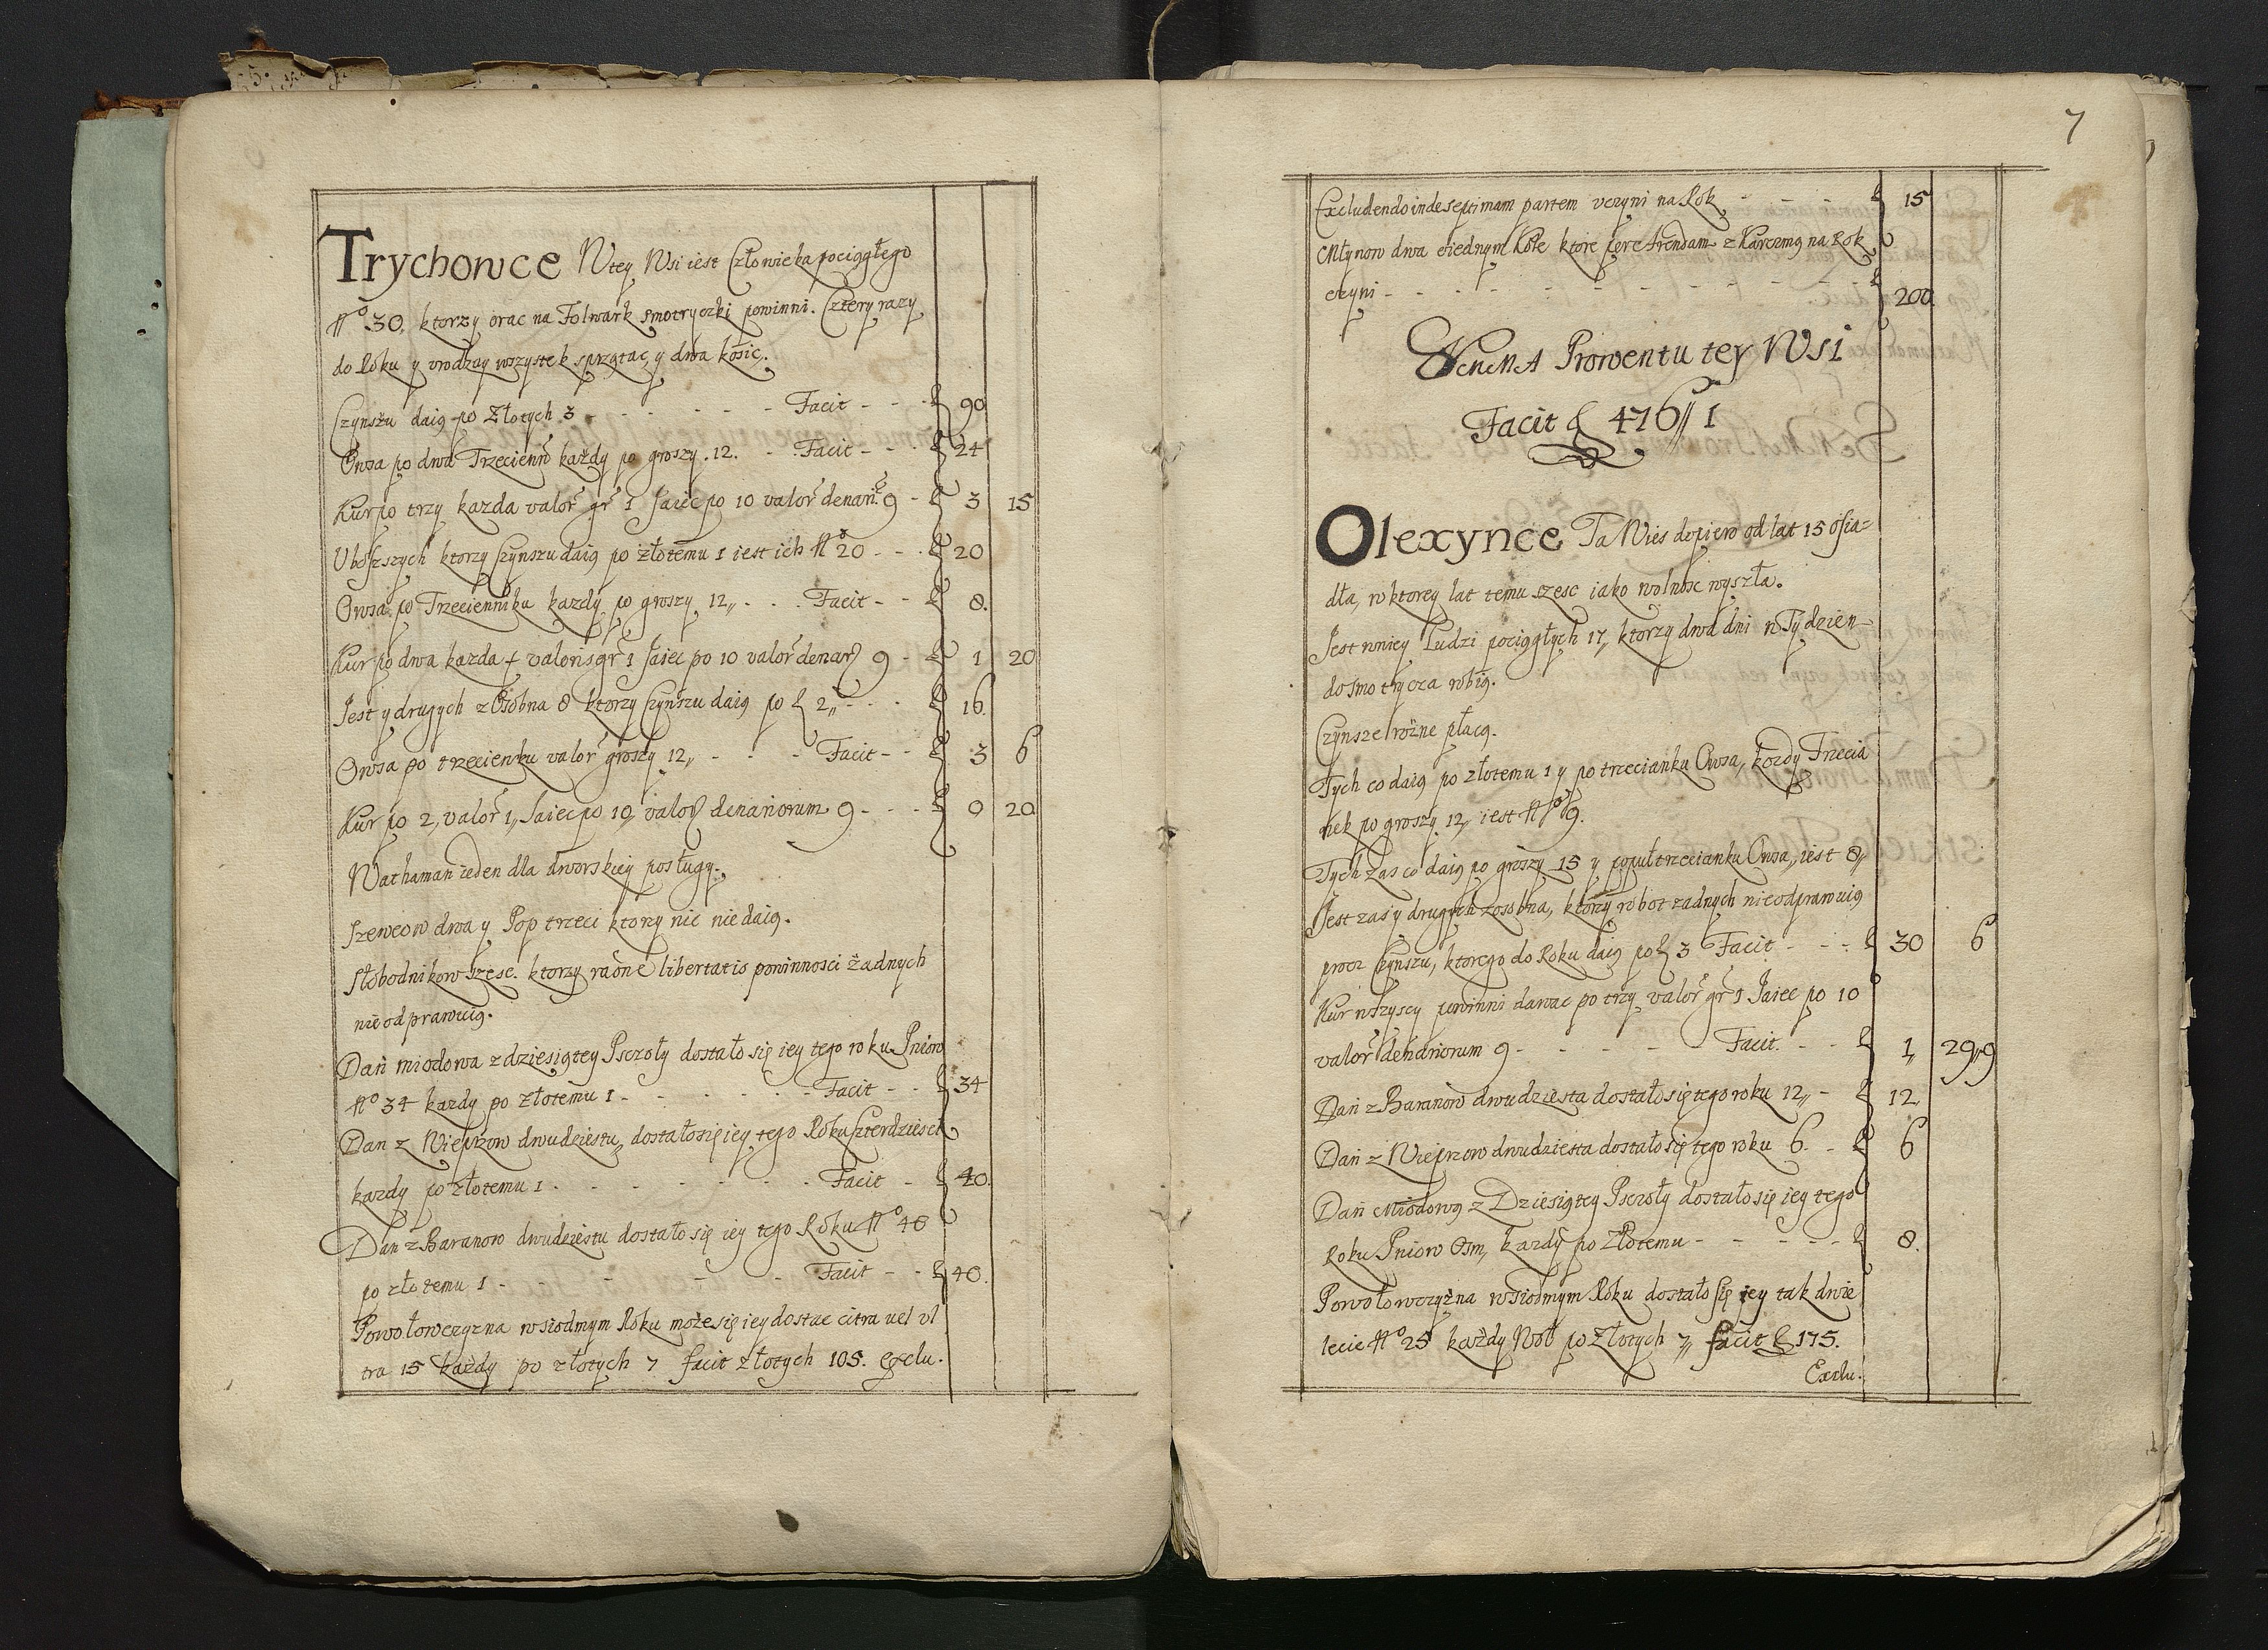 Trychowce W tey Wsi iest Człowieka pociągłego
No 30. ktorzy orac na Folwark smotrycki powinni. Cztery razy
do Roku y vrodzay wszystek sprzątac, y dwa kosic.
Czynszu daią po Złotych 3 - - - - - - Facit - - - 90
Owsa po dwa Trzecienn każdy po groszy .12. - - Facit - - - 24
Kur po trzy kazda valor gr 1 Jaiec po 10 valor denar 9 - 3 15
Vbossych ktorzy Czynszu daią po złotemu 1 iest ich No 20 - - - 20
Owsa po Trzecienniku kazdy po groszy 12,, - - - Facit - - 8.
Kur po dwa kazda + valoris gr 1 Jaiec po 10 valor denar 9 - 1 20
Jest y drugych z Osobna 8 ktorzy Czynszu daią po 2,, - - - 16.
Owsa po trzecienku valor groszy 12,, - - - - Facit - - 3 6
Kur po 2, valor 1,, Jaiec po 10 valor denariorum 9 - - - 0 20
Wathaman ieden dla dworskiey posługy.
Szewcow dwa y Pop trzeci ktory nic nie daią.
Słobodnikow szesc. ktorzy raone libertatis powinnosci żadnych
nie odprawuią.
Dań miodowa z dziesiątey Pszczoły dostało się iey tego roku Pniow
No 34 kazdy po złotemu 1 - - - - - - Facit - - 34
Dan z Wieprzow dwudziestu,, dostało się iey tego Roku Szterdziesci
kazdy po złotemu 1 - - - - - - - Facit - 40.
Dan z Baranow dwudziestu dostało się iey tego Roku No 40
po złotemu 1 - - - - - Facit - - 40.
Powołowczyzna w siodmym Roku może się iey dostac citra uel vl
tra 15 każdy po złotych 7 facit złotych 105. Exclu.
7
Excludendo inde septimam partem vczyni na Rok - - - - 15
Młynow dwa o iednym Kole ktore sere Arendam z Karczmą na Rok
czyni - - - - - - - - - - - 200
SVMMA Prowentu tey WSI
Facit 476// 1
Olexynce Ta Wies dopiero od lat 15 osia=
dła, w ktorey lat temu szesc iako wolnosc wyszła.
Jest w niey Ludzi pociągłych 17,, ktorzy dwa dni w Tydzien-
do smotrycza robią.
Czynsze rożne płacą.
Tych co daią po złotemu 1 y po trzecianku Owsa, kozdy Trzecia
nek po groszy 12,, iest No 9.
Tych zas co daią po groszy 15 y po puł trzecianku Owsa,, iest 8,,
Jest zas y drugych z osobna, ktorzy robot zadnych nie odprawuią
procz Czynszu, ktorego do Roku daią po 3 Facit - - - 30 6
Kur wszyscy powinni dawac po trzy valor gr 1 Jaiec po 10
valor denariorum 9 - - - - - Facit. - - 1,, 29,,9
Dań z Baranow dwudziesta dostało się tego roku 12,, - 12,
Dań z Wieprzow dwudziesta dostało się tego roku 6. - 6
Dań Miodową z Dziesiątey Pszczoły dostało się iey tego
Roku Pniow Osm, kazdy po Złotemu - - - - - 8.
Powołowczyżna w siodmym Roku dostało się iey tak dwie
lecie No 25 każdy Woł po Złotych 7,, facit 175.
Exclu.